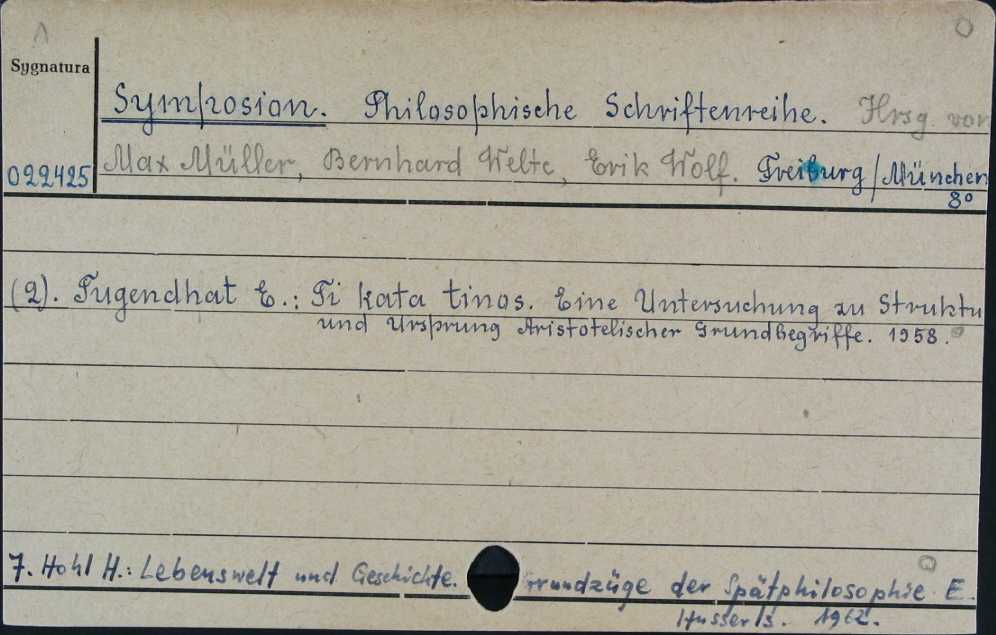 Sygnatura
Symposion. Philosophische Schriftenreihe. Hrsg. von
022425 Max Müller, Bernhard Welte, Erik Wolf. Freiburg/München
8°
(2). Tugendhat E.: Ti kata tinos. Eine Untersuchung zu Struktu
und Ursprung Aristotelischer Grundbegriffe. 1958.
7. Hohl H.: Lebenswelt und Geschichte. Grundzüge der Spätphilosophie E.
Husserls. 1962.